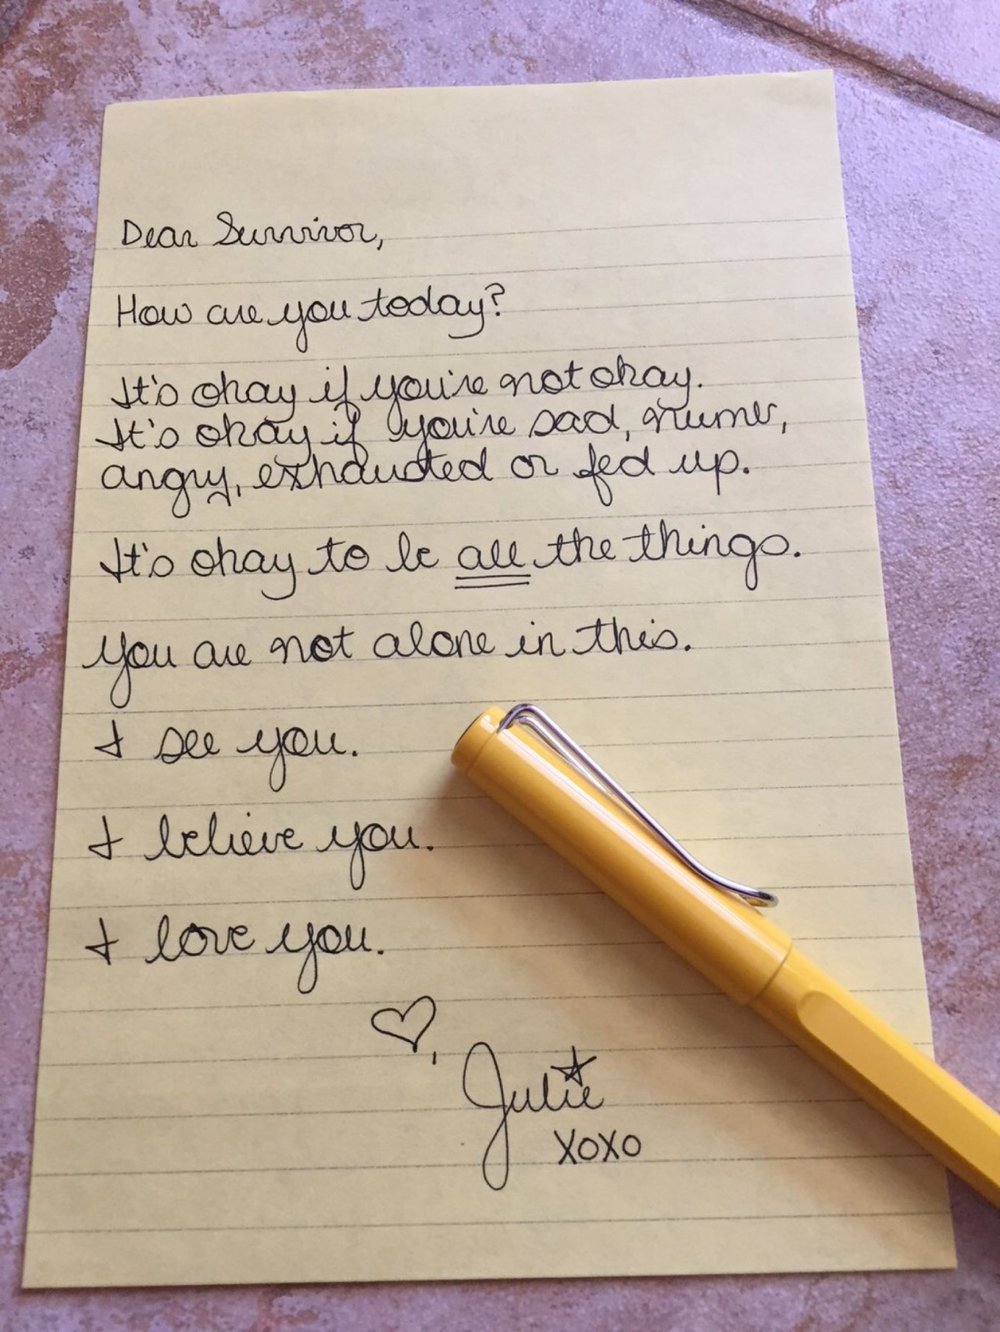 Dear Survivor,
How are you today?
It's okay if you're not okay.
It's okay if you're sad, numb,
angry, exhausted or fed up.
It's okay to be all the things.
You are not alone in this.
I see you.
I believe you.
I love you.
♡,
Julie
xoxo